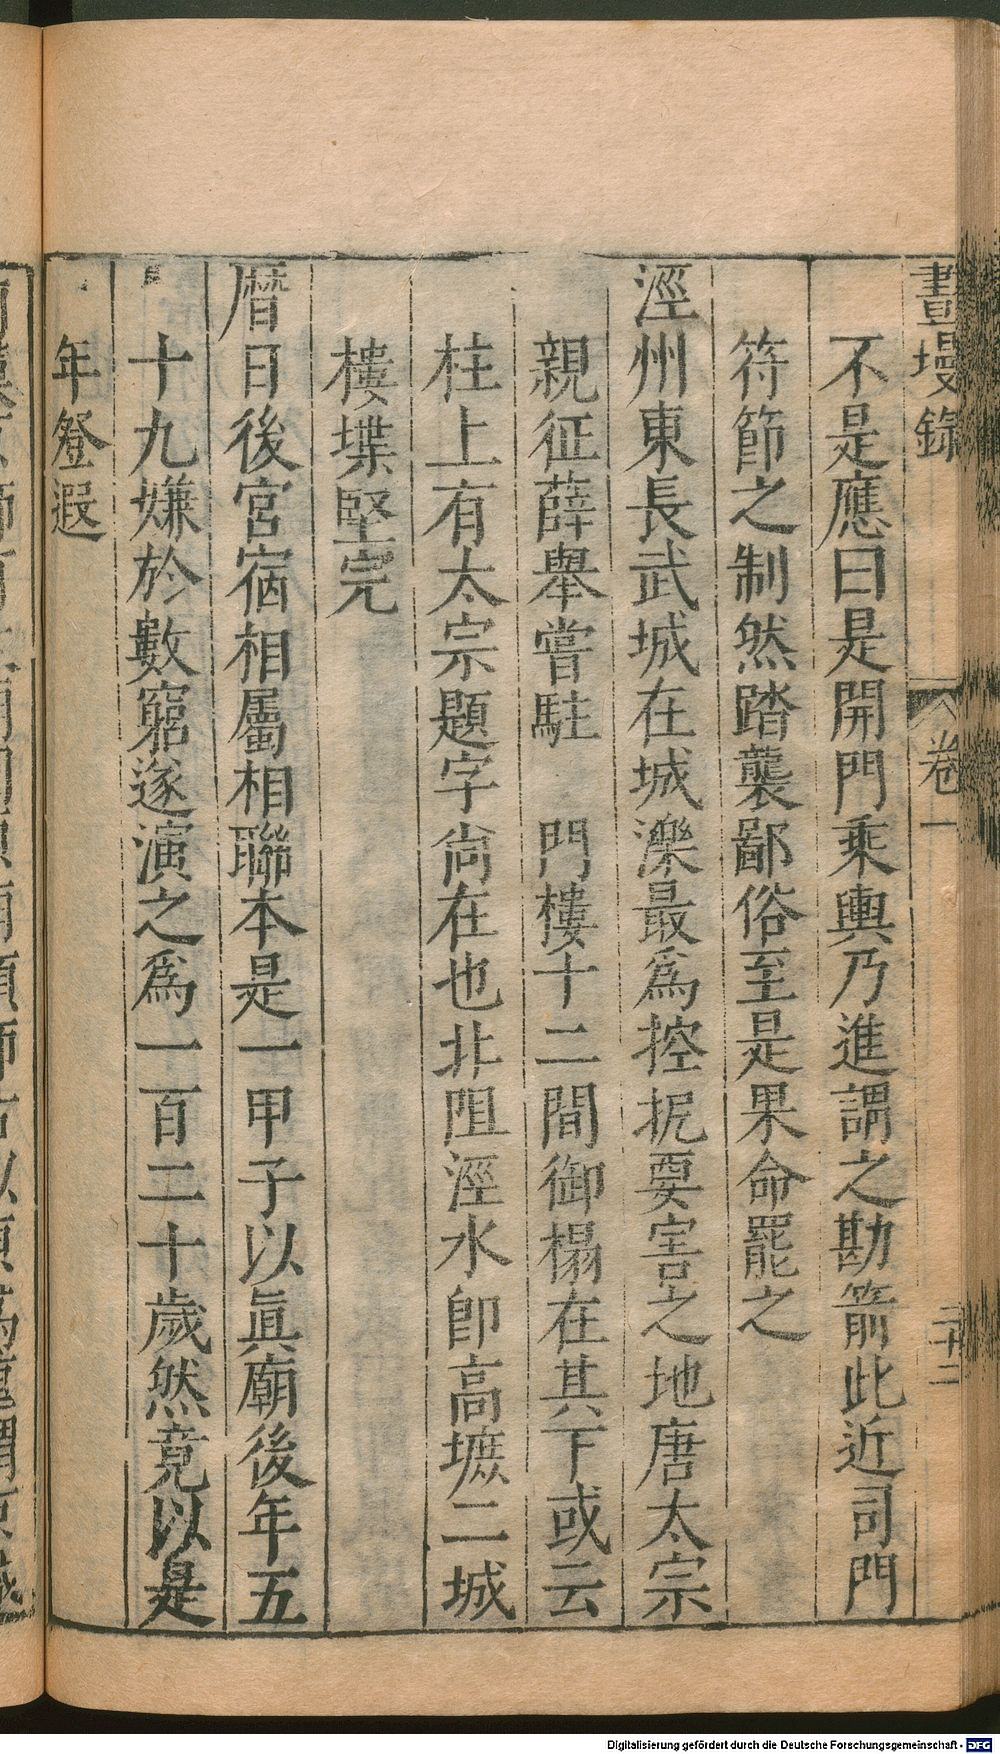 畫墁錄 卷一 二十二
不是應曰是開門乘輿乃進謂之勘箭此近司門
符節之制然踏襲鄙俗至是果命罷之
涇州東長武城在城濼最爲控扼要害之地唐太宗
親征薛舉嘗駐 門樓十二間御榻在其下或云
柱上有太宗題字尙在也非阻涇水卽高壚二城
樓堞堅完
曆日後宮宿相屬相聯本是一甲子以眞廟後年五
十九嫌於數窮遂演之爲一百二十歲然竟以是
年登遐
Digitalisierung gefördert durch die Deutsche Forschungsgemeinschaft - DFG